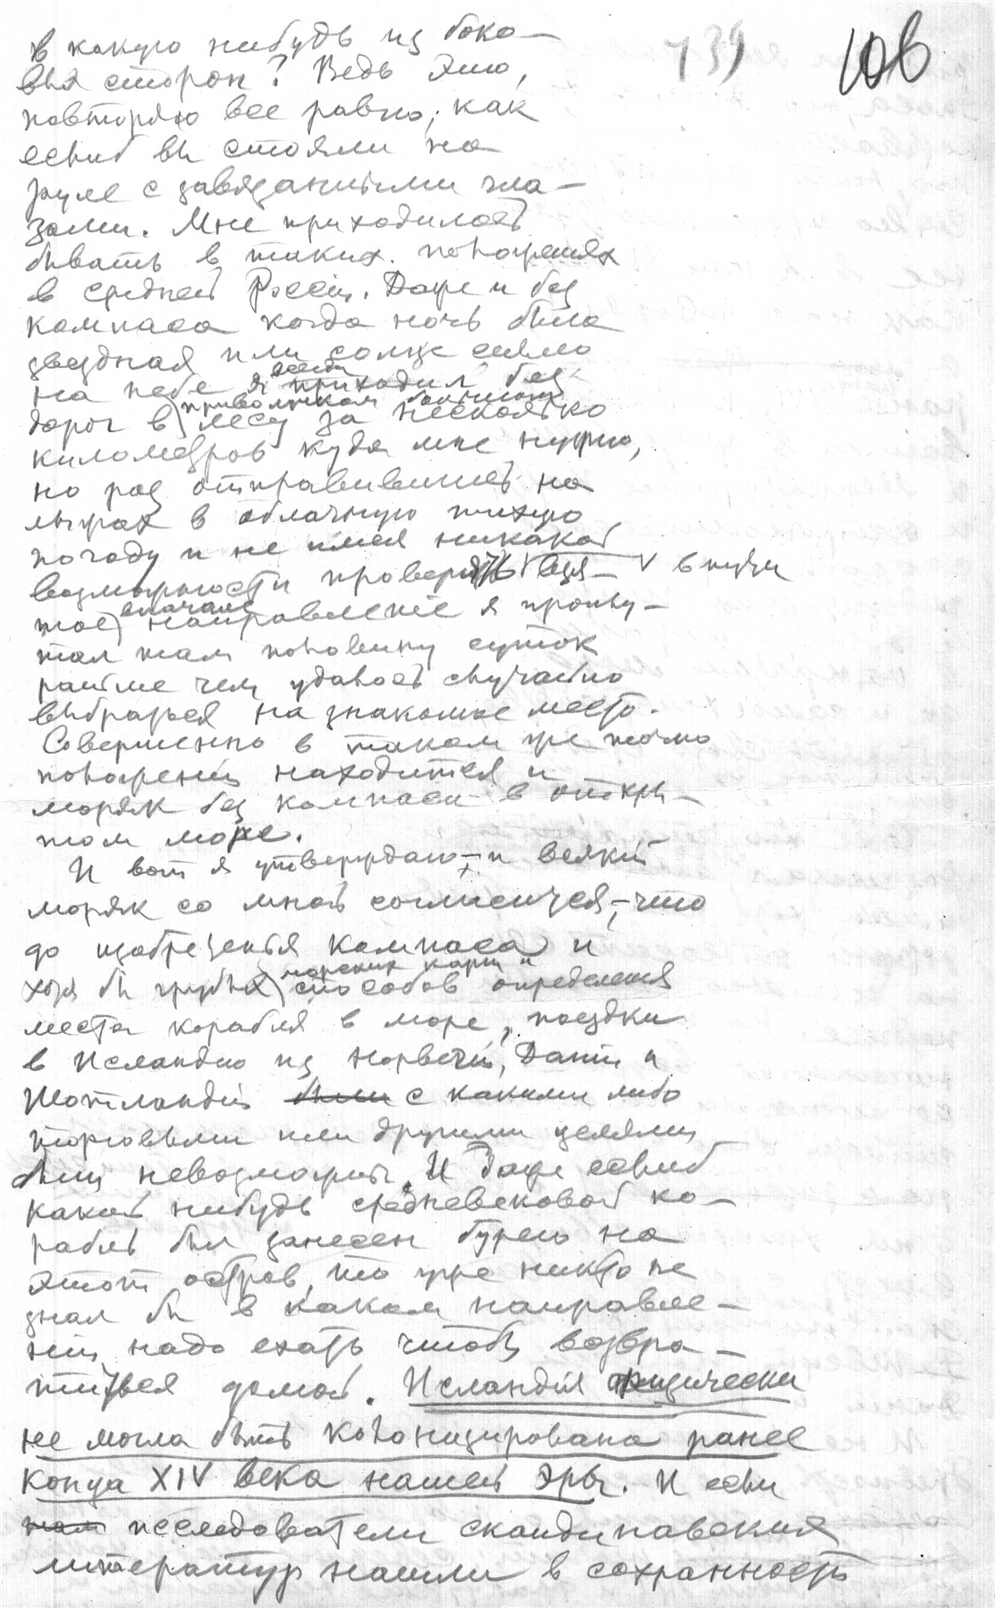 739 10в
в какую нибудь из боко-
вых сторон? Ведь это,
повторяю все равно, как
еслиб вы стояли на
руле с завязанными гла-
зами. Мне приходилось
бывать в таких положениях
в средней России. Даже и без
компаса когда ночь была
звездная или солнце сияло
на небе я всегда приходил без
дорог в привольном большом лесу за несколько
километров куда мне нужно,
но раз отправившись на
лыжах в облачную тихую
погоду и не имея никакой
возможности проверить в пути взя-
тое вначале направление я проплу-
тал там половину суток
раньше чем удалось случайно
выбраться на знакомое место.
Совершенно в таком же точно
положении находится и
моряк без компаса в откры-
том море.
И вот я утверждаю - и всякий
моряк со мной согласится, - что
до изобретенья компаса и
хотя бы грубых морских карт и способов определения
места корабля в море, поездки
в Исландию из Норвегии, Дании и
Шотландии были с какими либо
торговыми или другими целями
были невозможны. И даже еслиб
какой нибудь средневековой ко-
рабль был занесен бурею на
этот остров, то уже никто не
знал бы в каком направле-
нии надо ехать чтобы возвра-
титься домой. Исландия физически
не могла быть колонизирована ранее
конца XIV века нашей эры. И если
там исследователи скандинавския
литератур нашли в сохранность